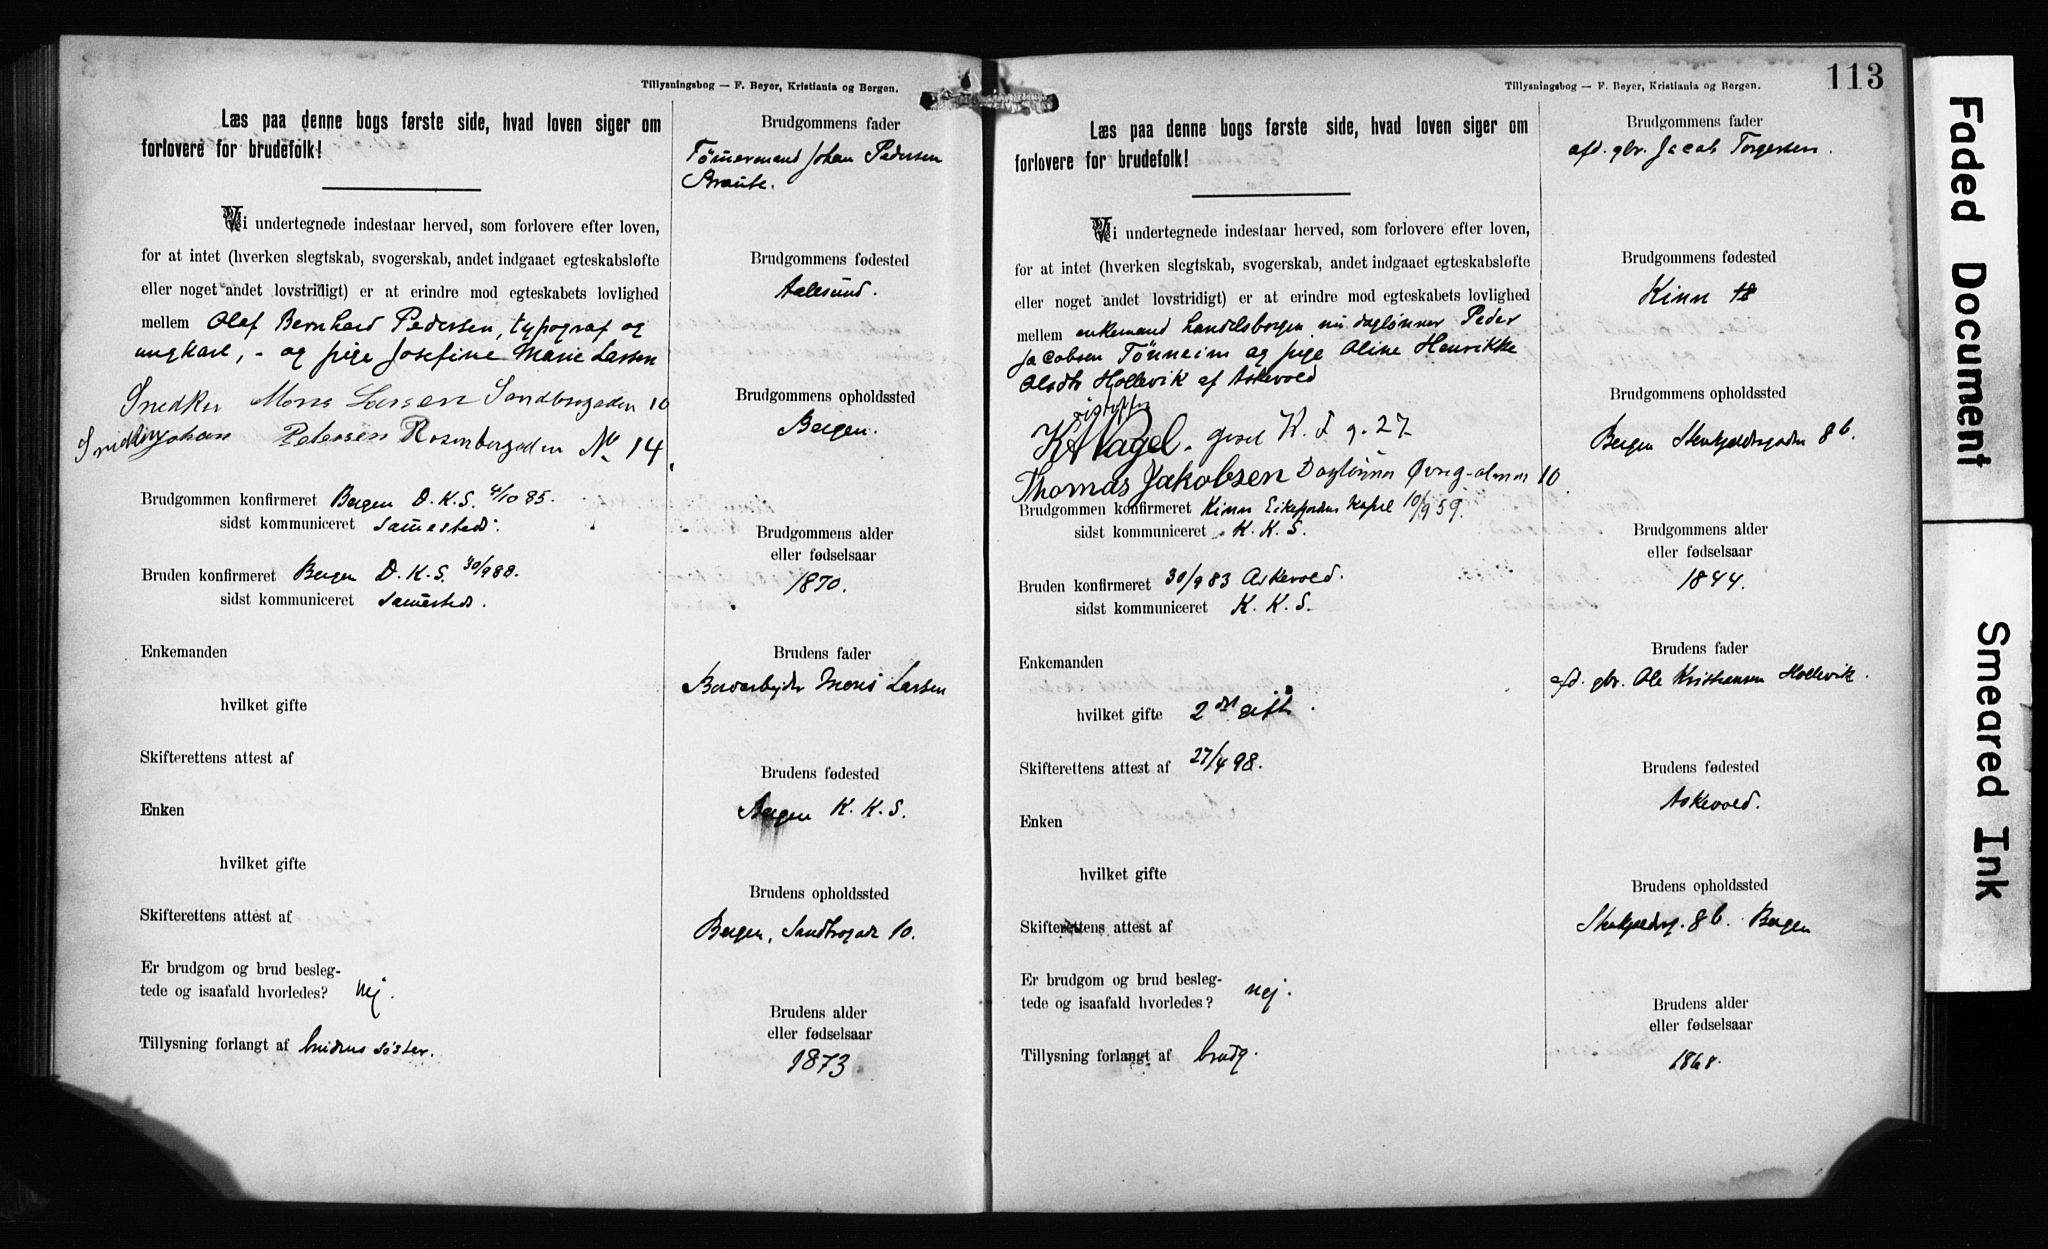 Tillysningsbog — F. Beyer, Kristiania og Bergen.
Læs paa denne bogs første side, hvad loven siger om
forlovere for brudefolk!
Vi undertegnede indestaar herved, som forlovere efter loven,
for at intet (hverken slegtskab, svogerskab, andet indgaaet egteskabsløfte
eller noget andet lovstridigt) er at erindre mod egteskabets lovlighed
mellem Olaf Bernhard Pedersen, typograf og
ungkarl, - og pige Josefine Marie Larsen
Snedker Mons Larsen Sandbrogaden 10
Snedker Johan Petersen Rosenbergaden No 14.
Brudgommen konfirmeret Bergen D.K.S. 4/10 85.
sidst kommuniceret sammesteds.
Bruden konfirmeret Bergen D.K.S. 30/9 88.
sidst kommuniceret sammesteds.
Enkemanden
hvilket gifte
Skifterettens attest af
Enken
hvilket gifte
Skifterettens attest af
Er brudgom og brud besleg-
tede og isaafald hvorledes? nej.
Tillysning forlangt af brudens søster.
Brudgommens fader
Tömmermand Johan Pedersen
Braute.
Brudgommens fødested
Aalesund.
Brudgommens opholdssted
Bergen.
Brudgommens alder
eller fødselsaar
1870.
Brudens fader
Mons Larsen
Brudens fødested
Bergen K. K. S.
Brudens opholdssted
Bergen, Sandbrogade 10.
Brudens alder
eller fødselsaar
1873
Tillysningsbog — F. Beyer, Kristiania og Bergen.
113
Læs paa denne bogs første side, hvad loven siger om
forlovere for brudefolk!
Vi undertegnede indestaar herved, som forlovere efter loven,
for at intet (hverken slegtskab, svogerskab, andet indgaaet egteskabsløfte
eller noget andet lovstridigt) er at erindre mod egteskabets lovlighed
mellem enkemand handelsborger, nu daglønner Peder
Jacobsen Tönneim og pige Oline Henrikke
Olsdtr Hollevik af Askevold
K A Nagel. K. F g. 27
Thomas Jakobsen Daglønner Øvreg-almen 10.
Brudgommen konfirmeret Kinn Eikefjordens Kapel 10/9 59.
sidst kommuniceret K. K. S.
Bruden konfirmeret 30/9 83 Askevold.
sidst kommuniceret K. K. S.
Enkemanden
hvilket gifte 2det gifte.
Skifterettens attest af 27/4 98.
Enken
hvilket gifte
Skifterettens attest af
Er brudgom og brud besleg-
tede og isaafald hvorledes? nej.
Tillysning forlangt af brudg.
Brudgommens fader
afd. gbr. Jacob Torgersen.
Brudgommens fødested
Kinn
Brudgommens opholdssted
Bergen Stenkjeldergaden 8 b.
Brudgommens alder
eller fødselsaar
1844.
Brudens fader
afd. gbr. Ole Kristiansen Hollevik.
Brudens fødested
Askevold.
Brudens opholdssted
Stenkjelderg. 8 b. Bergen
Brudens alder
eller fødselsaar
1868.
Faded Document
Smeared Ink